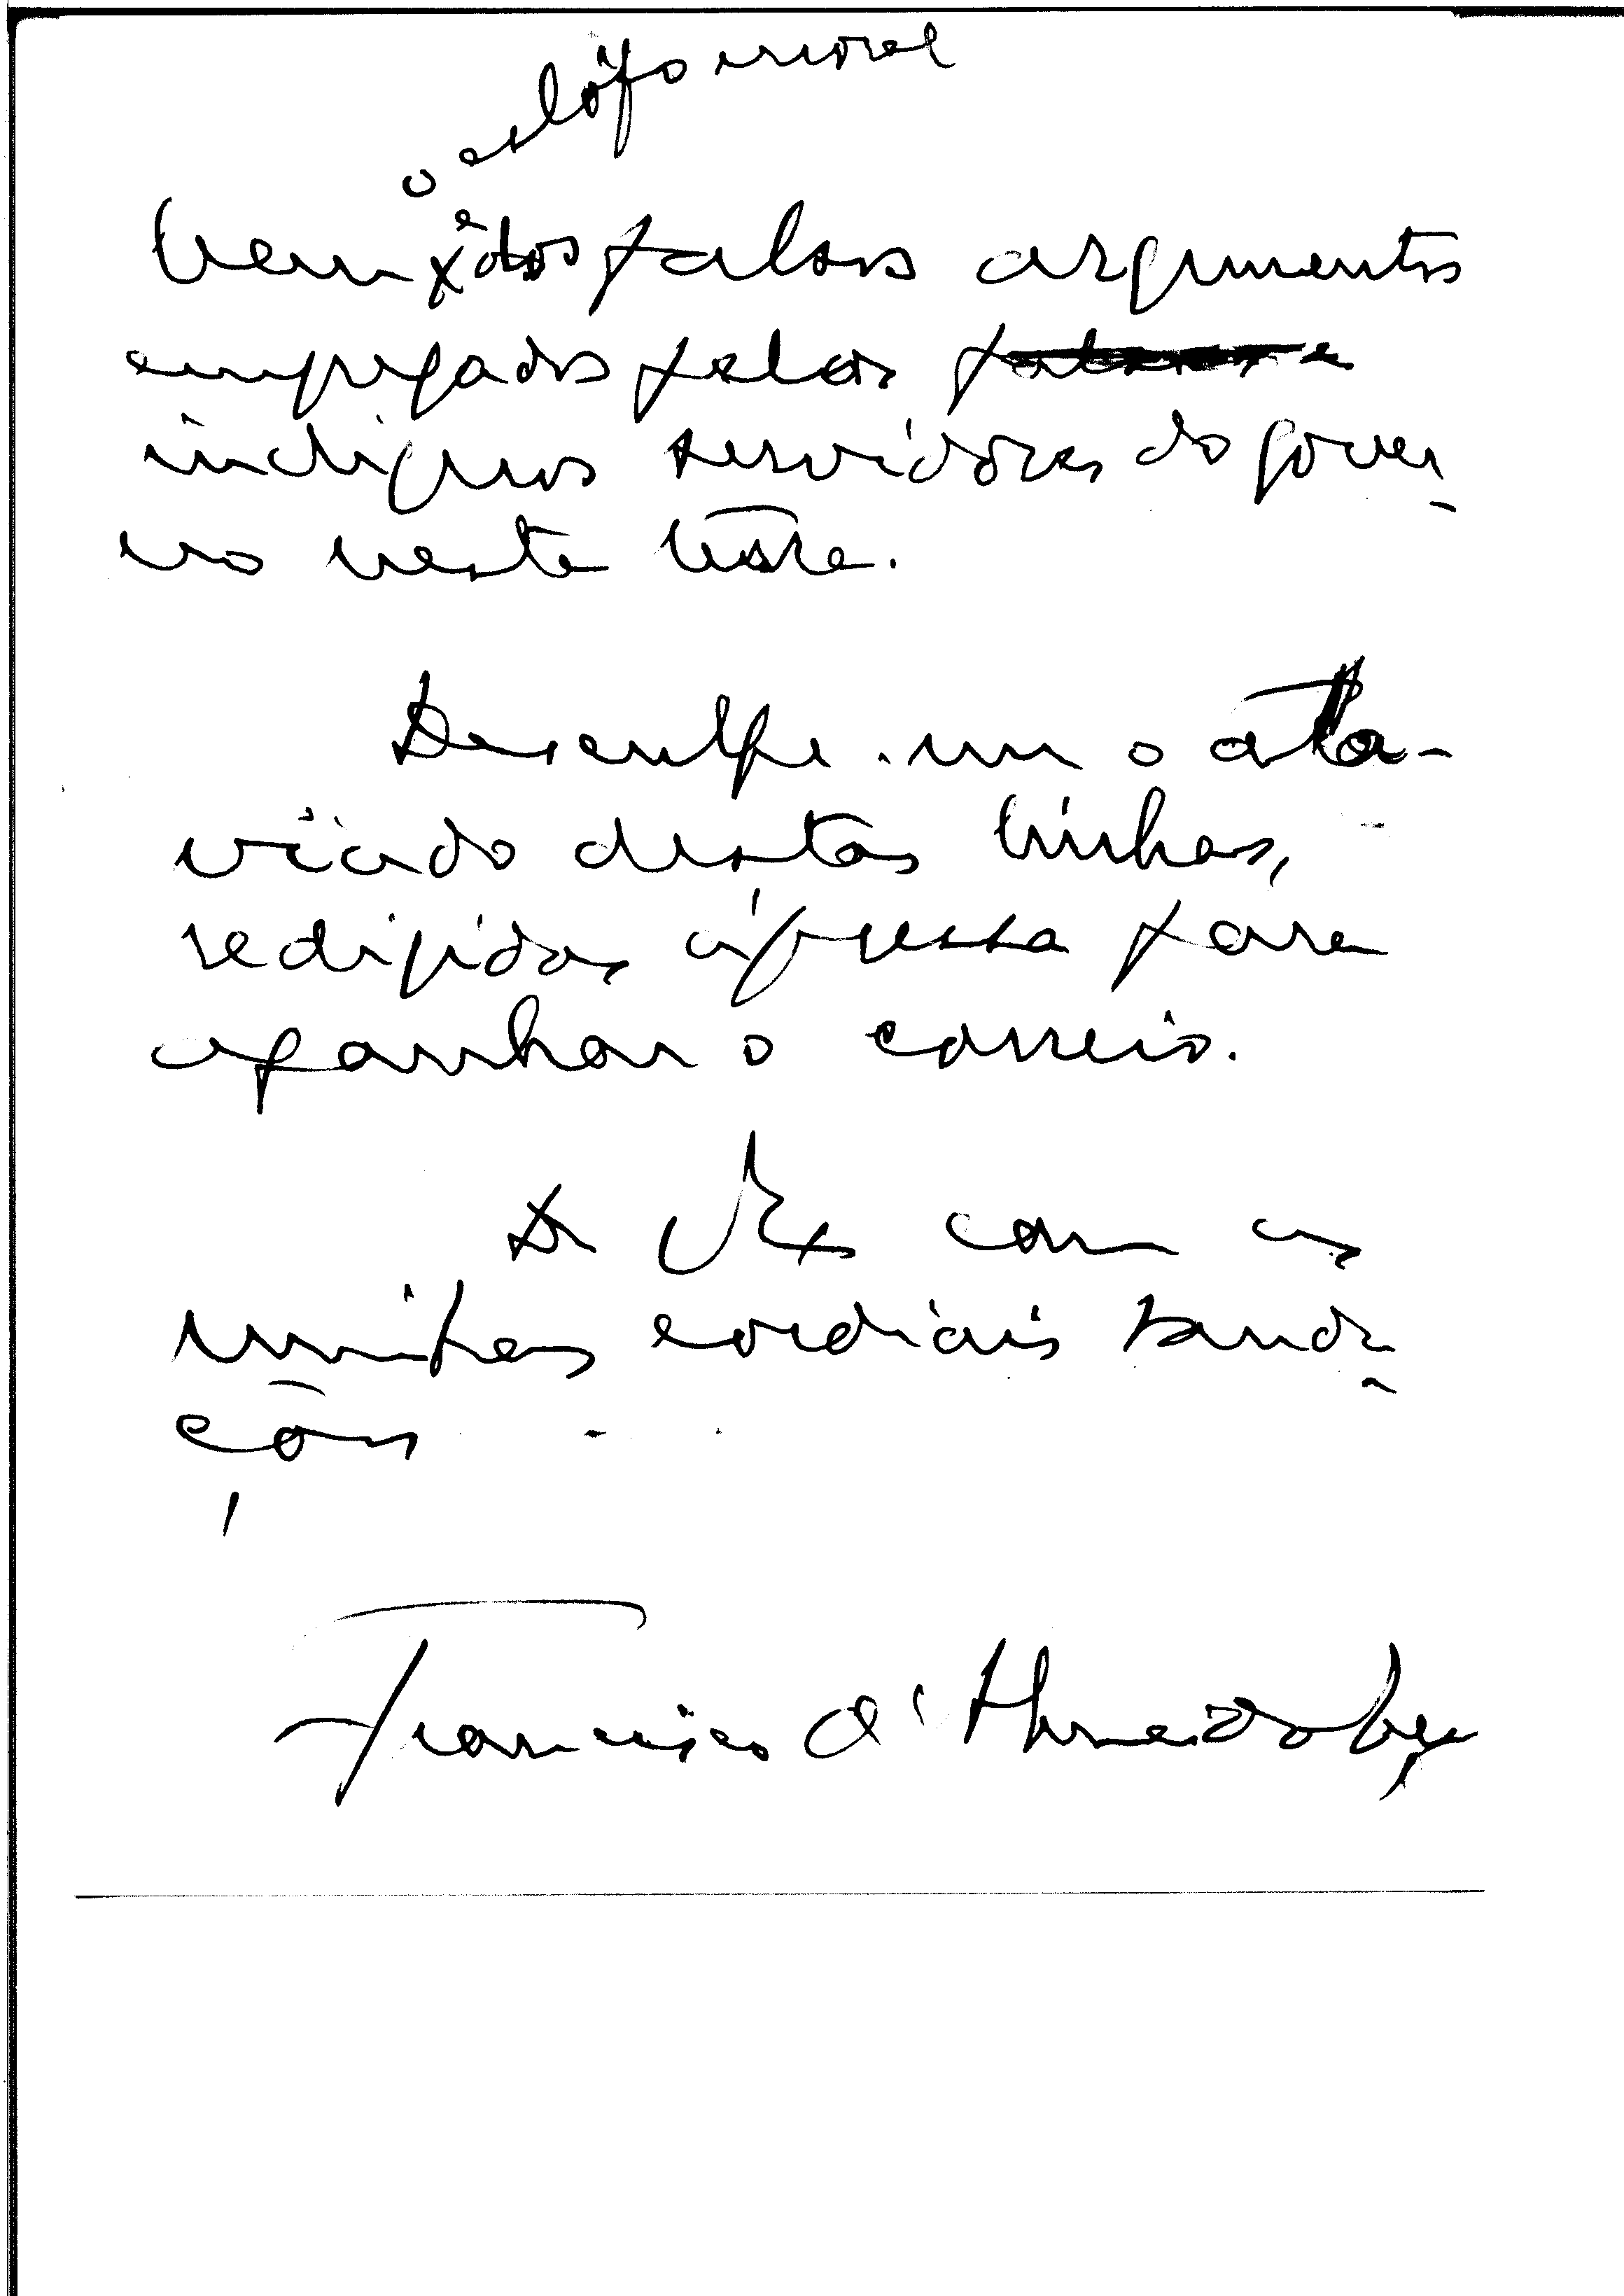 o estôfo moral
bem e dos falsos argumentos
empregados pelos falsos e
indignos servidores do gover-
no neste
Desculpe-me o ata-
viado destas linhas,
redigidas à pressa para
apanhar o correio.
De V. Ex com as
minhas cordiais sauda-
ções
Francisco d'Almeida